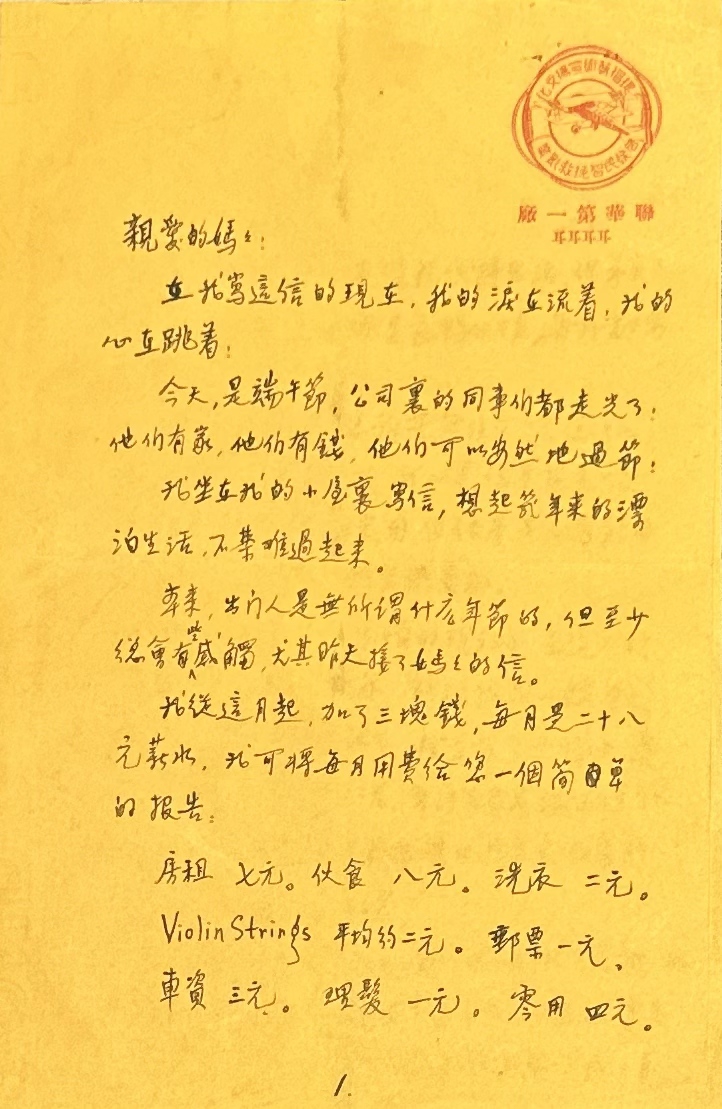 聯華第一廠
親愛的媽々：
在我寫這信的現在，我的淚在流着，我的
心在跳着；
今天，是端午節，公司裏的同事们都走光了；
他们有家，他们有錢，他们可以安然地過節；
我坐在我的小屋裏寫信，想起幾年来的漂
泊生活，不禁难過起来。
本来，出门人是無所謂什么年節的，但至少
總會有些感觸，尤其昨天接了媽々的信。
我從這月起，加了三塊錢，每月是二十八
元薪水，我可將每月用費给您一個简單
的报告：
房租 七元。伙食 八元。洗衣 二元。
Violin Strings 平均约二元。郵票一元、
車資 三元。理髮 一元。零用 四元。
1.